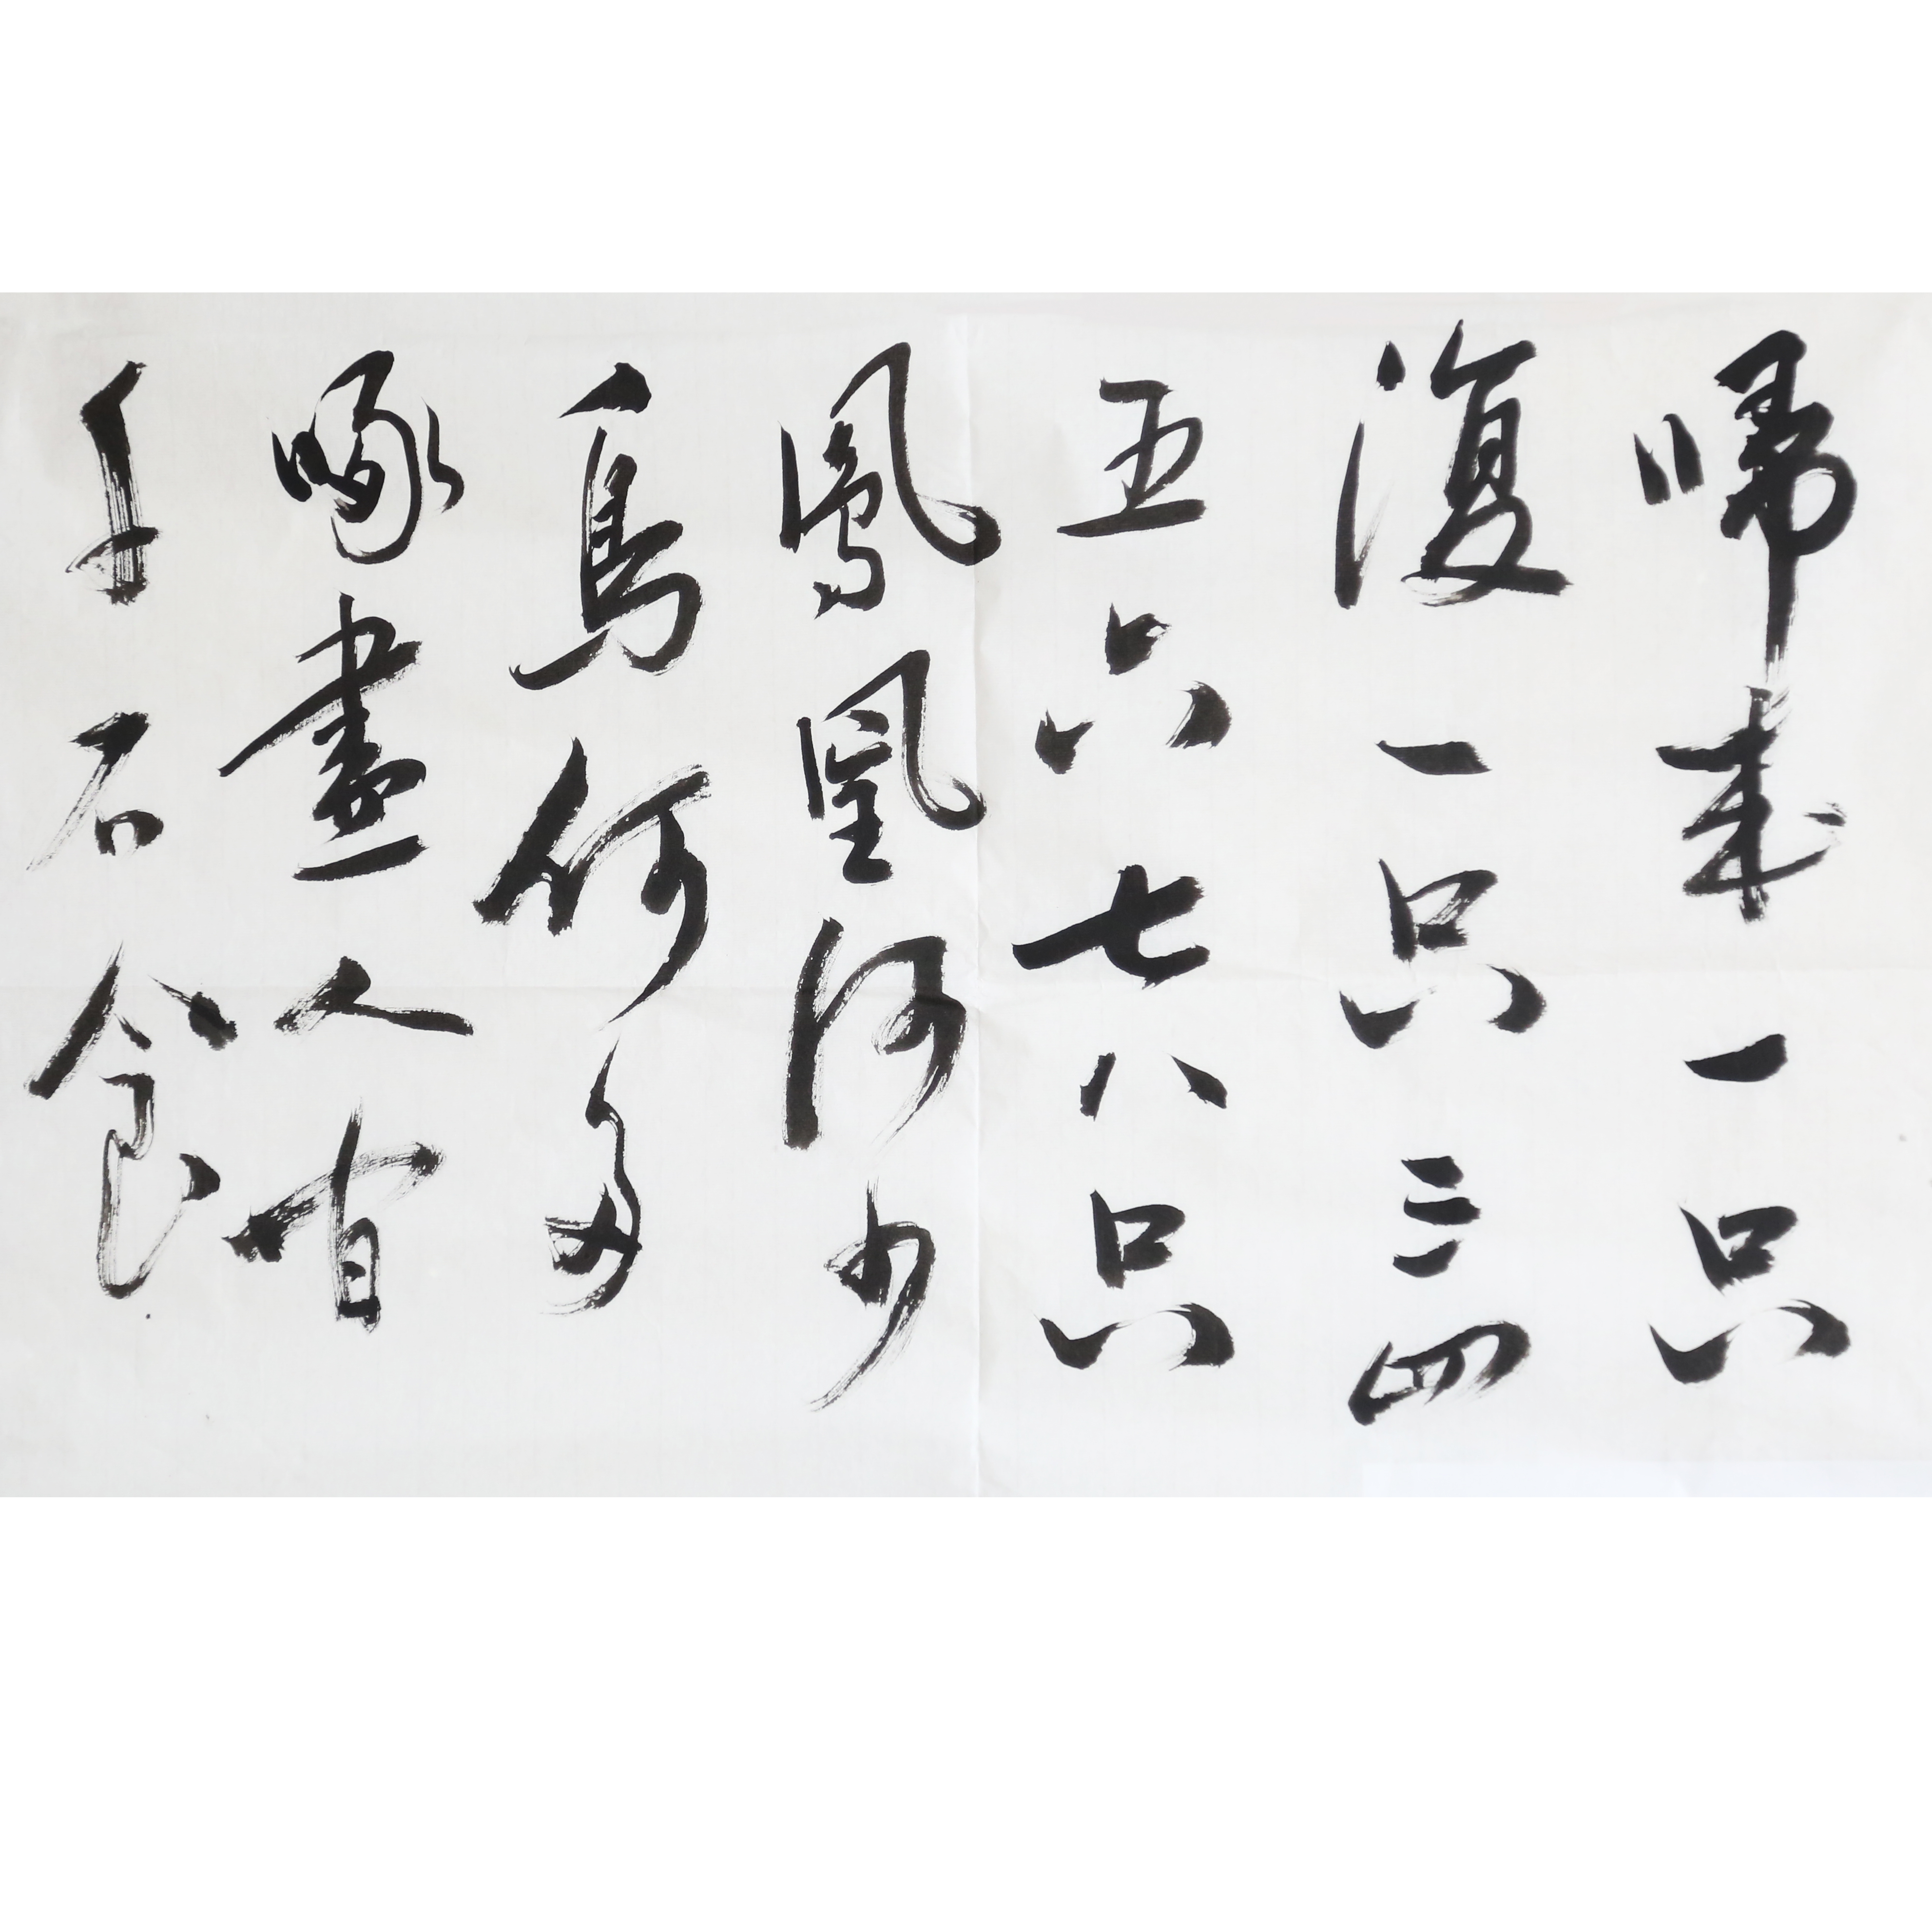 歸來一只
復一只三四
五六七八只
鳳凰何少
鳥何多
啄盡人間
千石食